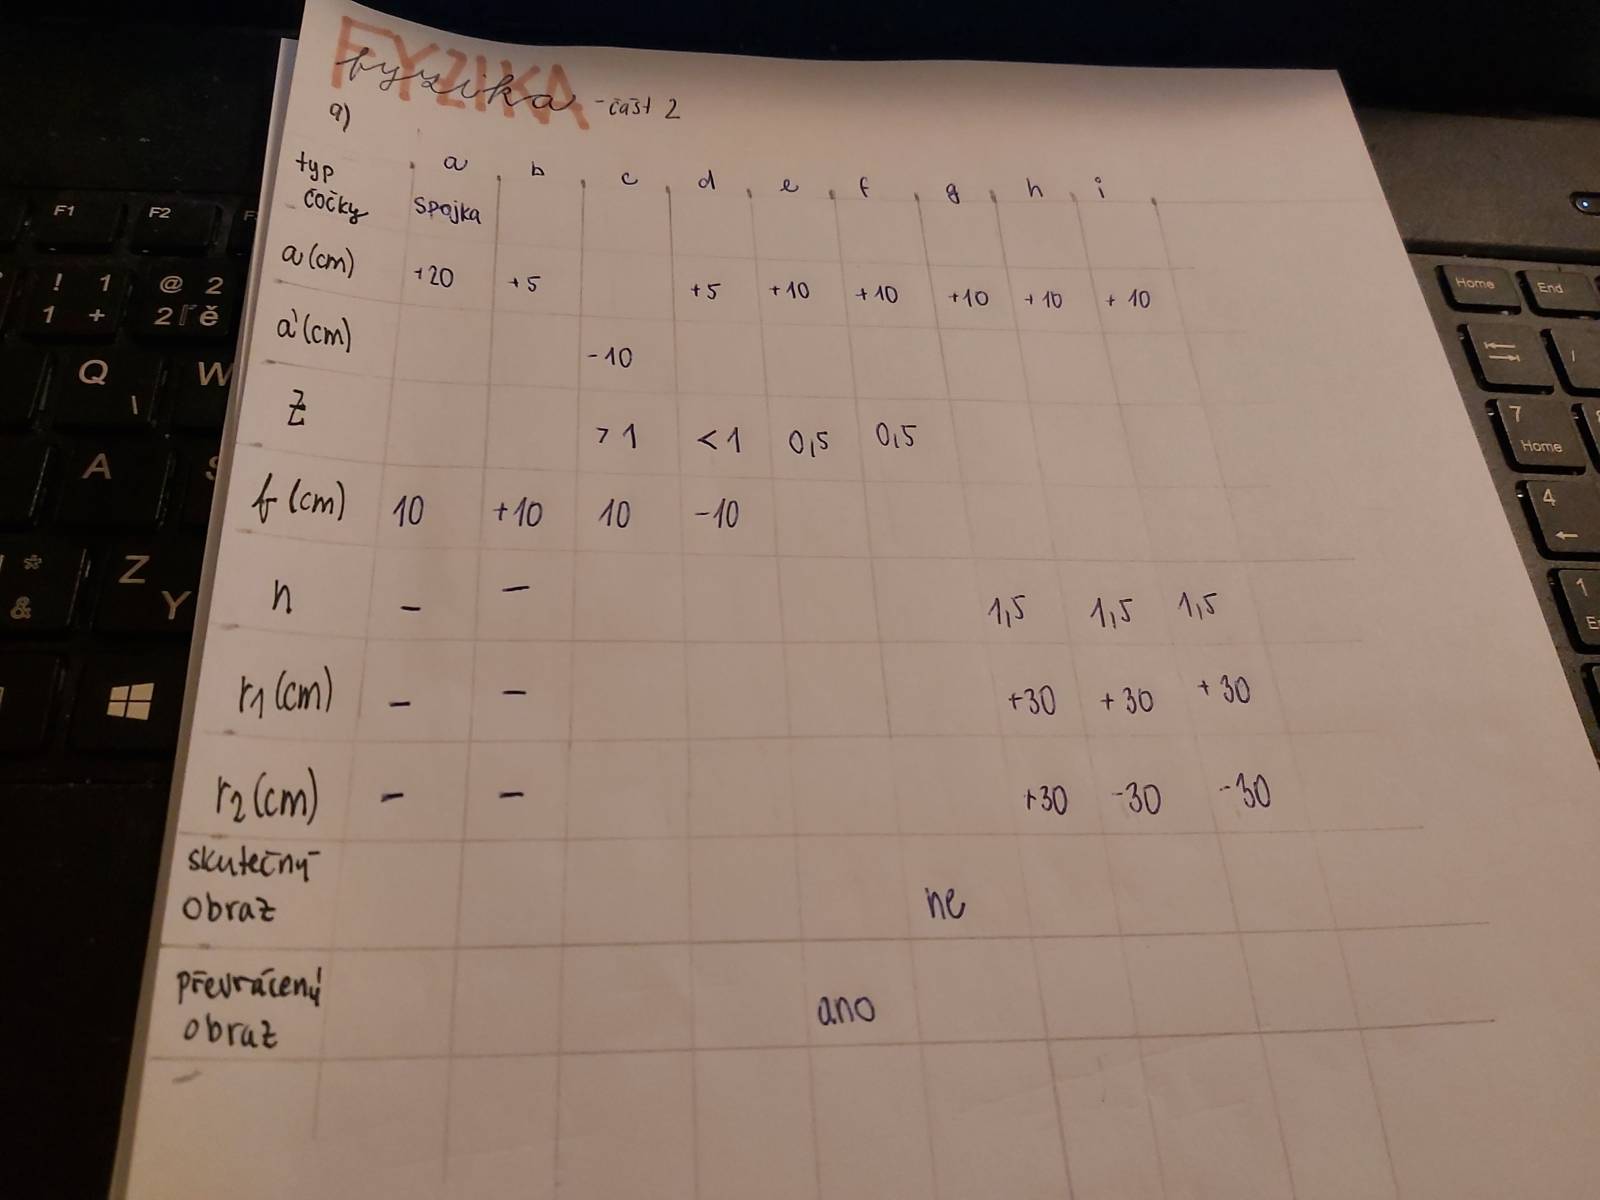 FYZIKA
fyzika - část 2
a)
typ čočky a b c d e f g h i
spojka
a (cm) +20 +5 +5 +10 +10 +10 +10 +10
a' (cm) -10
Z >1 <1 0,5 0,5
f (cm) 10 +10 10 -10
n - - 1,5 1,5 1,5
r1 (cm) - - +30 +30 +30
r2 (cm) - - +30 -30 -30
skutečný
obraz ne
převrácený
obraz ano
F1 F2
! 1 @ 2
1 + 2 ě
Q \ W
A S
* & Z Y
Home End
7 Home
4 ←
1